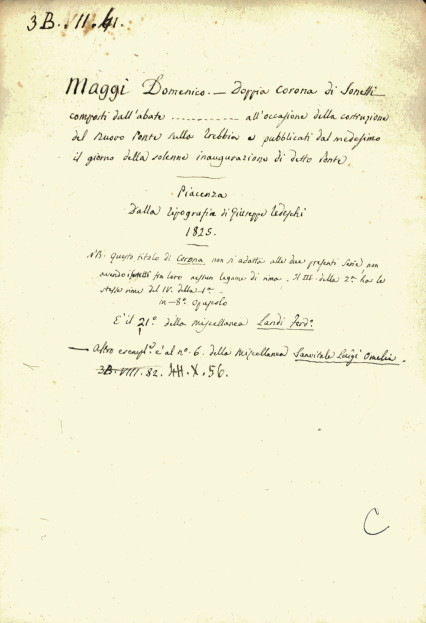 3B. VII. 41.
Maggi Domenico. — Doppia Corona di Sonetti
composti dall'abate ............ all'occasione della costruzione
del Nuovo Ponte sulla Trebbia e pubblicati dal medesimo
il giorno della solenne inaugurazione di detto Ponte.
Piacenza
Dalla tipografia di Giuseppe Tedeschi
1825.
NB. Questo titolo di Corona non si adatta alle due presenti Serie non
avendo i sonetti fra loro nessun legame di rima. Il III. della 2ª ha le
stesse rime del IV. della 1ª —
in-8° Opuscolo
E' il 21° della miscellanea Landi Ferd°
— Altro esempl.e è al n°. 6. della Miscellanea Sanvitale Luigi Omelie.
3B. VIII. 82. 44. X. 56.
C